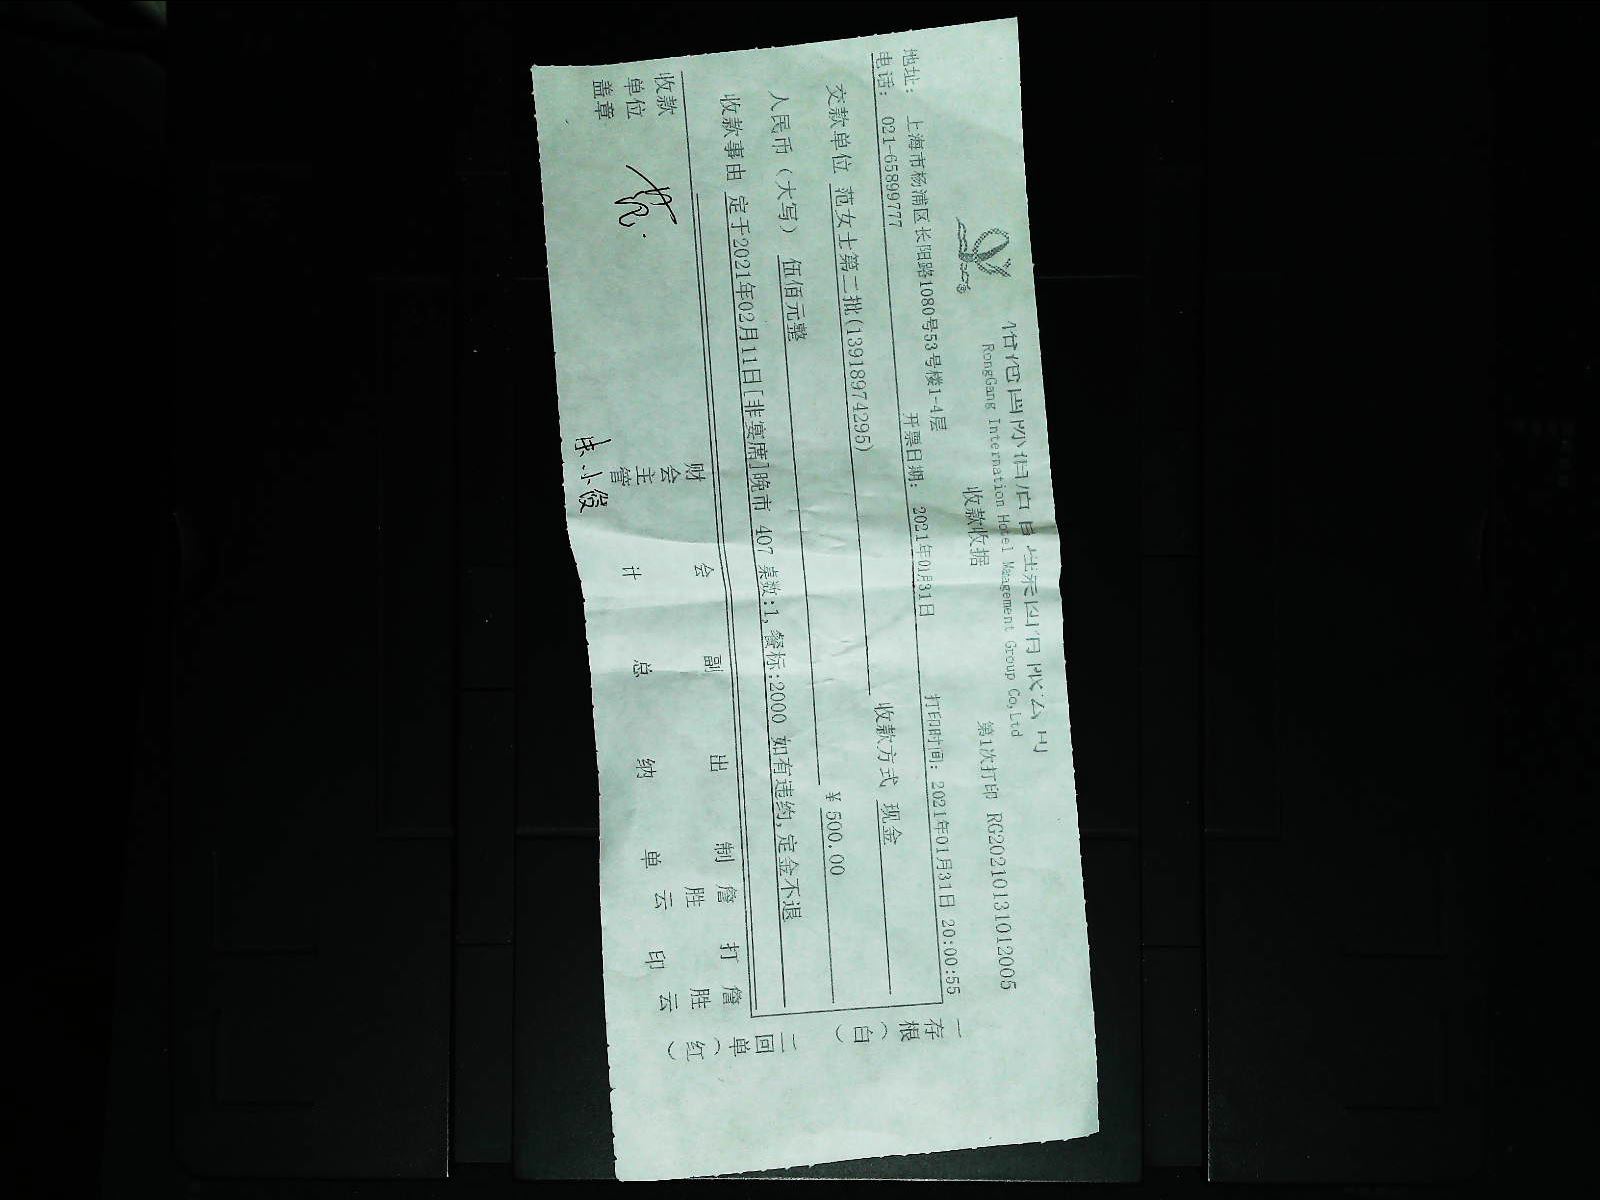 RongGang Internation Hotel Management Group Co,Ltd
收款收据
第1次打印 RG20210131012005
地址: 上海市杨浦区长阳路1080号53号楼1-4层
电话: 021-65899777
开票日期: 2021年01月31日
打印时间: 2021年01月31日 20:00:55
交款单位 范女士第二批(13918974295)
收款方式 现金
人民币(大写) 伍佰元整
¥ 500.00
收款事由 定于2021年02月11日[非宴席]晚市 407 桌数:1,餐标:2000 如有违约,定金不退
收款单位盖章
财会主管
会计
副总
出纳
制单
詹胜云
打印
詹胜云
一存根(白)
二回单(红)